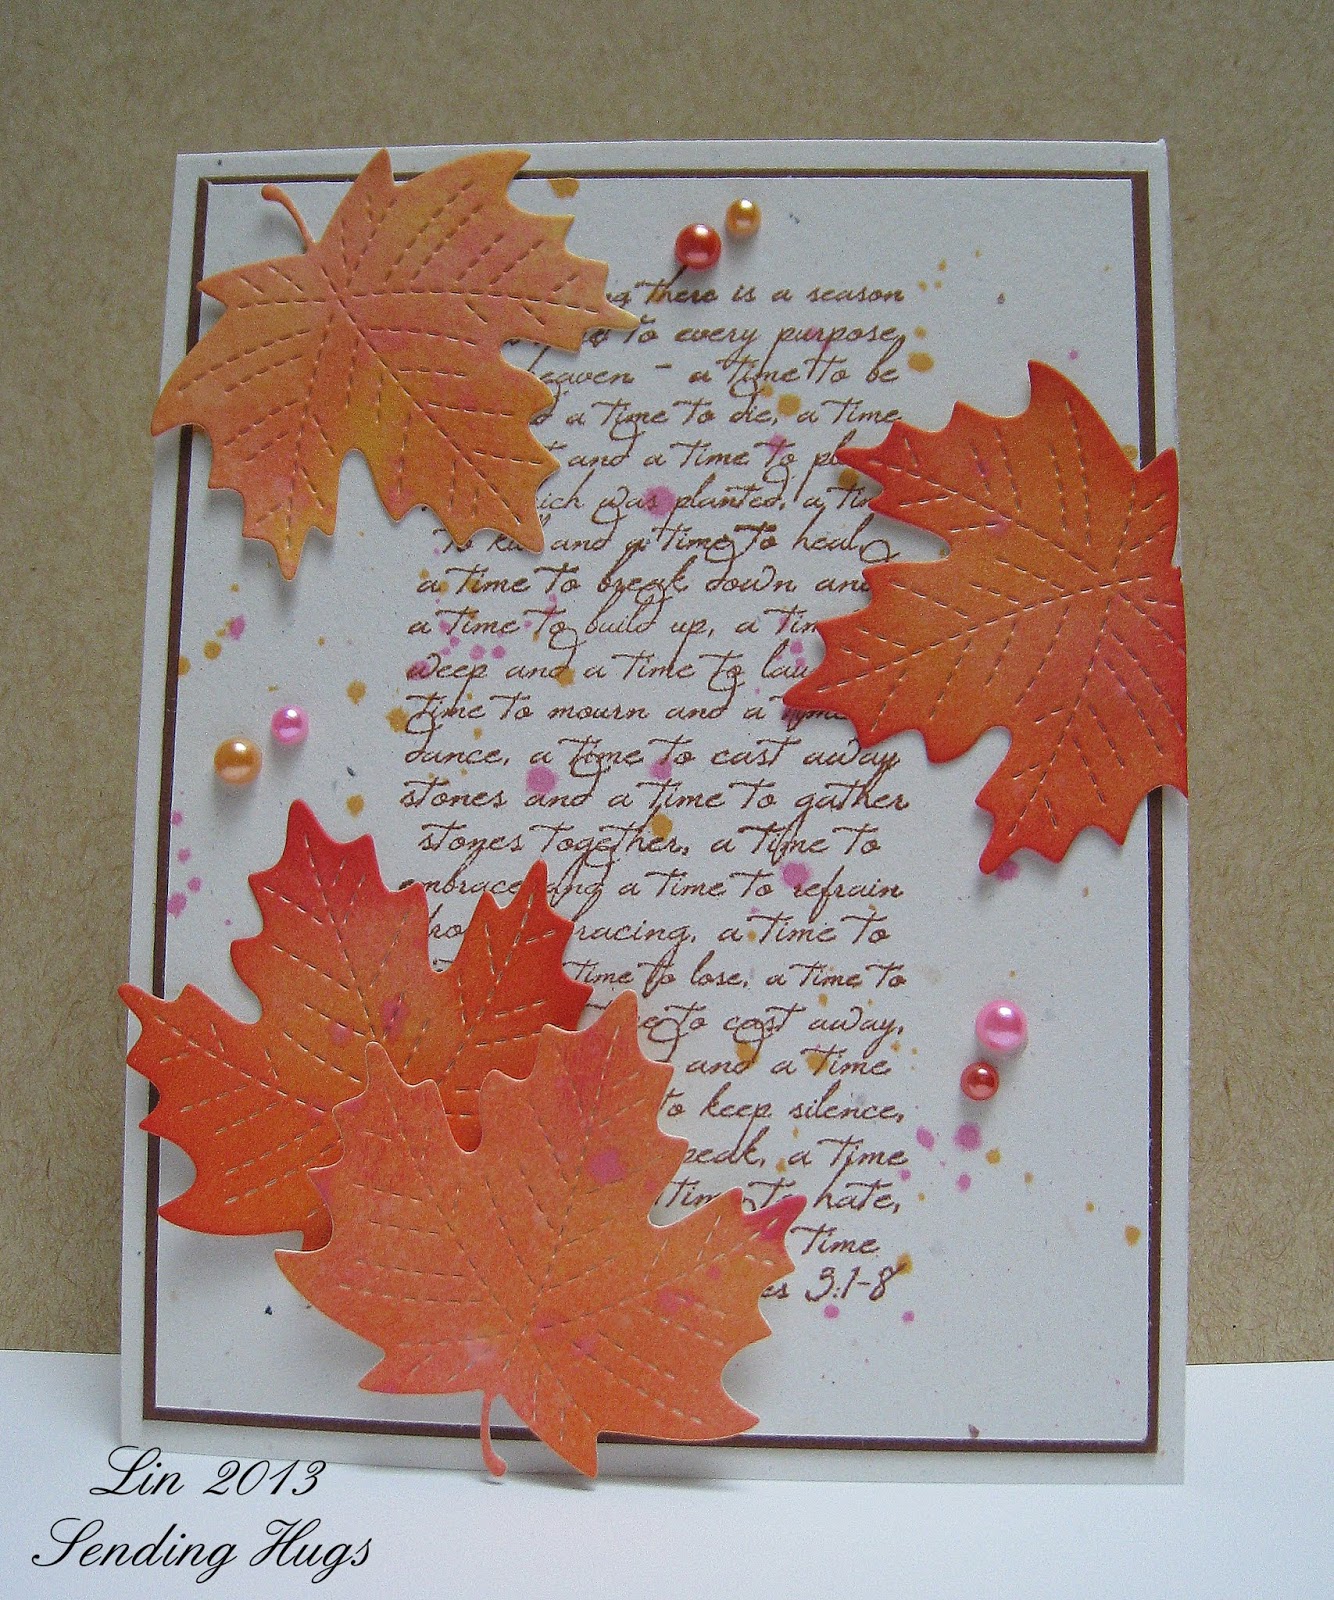 there is a season
to every purpose
heaven - a time to be
a time to die, a time
and a time to
which was planted, a time
to kill and a time to heal,
a time to break down and
a time to build up, a time
weep and a time to
time to mourn and a time
dance, a time to cast away
stones and a time to gather
stones together, a time to
embrace and a time to refrain
a time to
time to lose, a time to
to cast away,
and a time
to keep silence,
speak, a time
time to hate,
time
3:1-8
Lin 2013
Sending Hugs